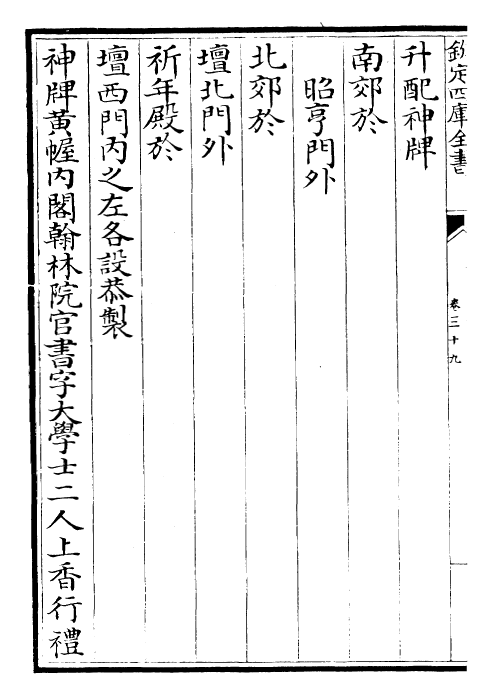 欽定四庫全書
卷三十九
升配神牌
南郊於
昭亨門外
北郊於
壇北門外
祈年殿於
壇西門内之左各設恭製
神牌黃幄内閣翰林院官書字大學士二人上香行禮